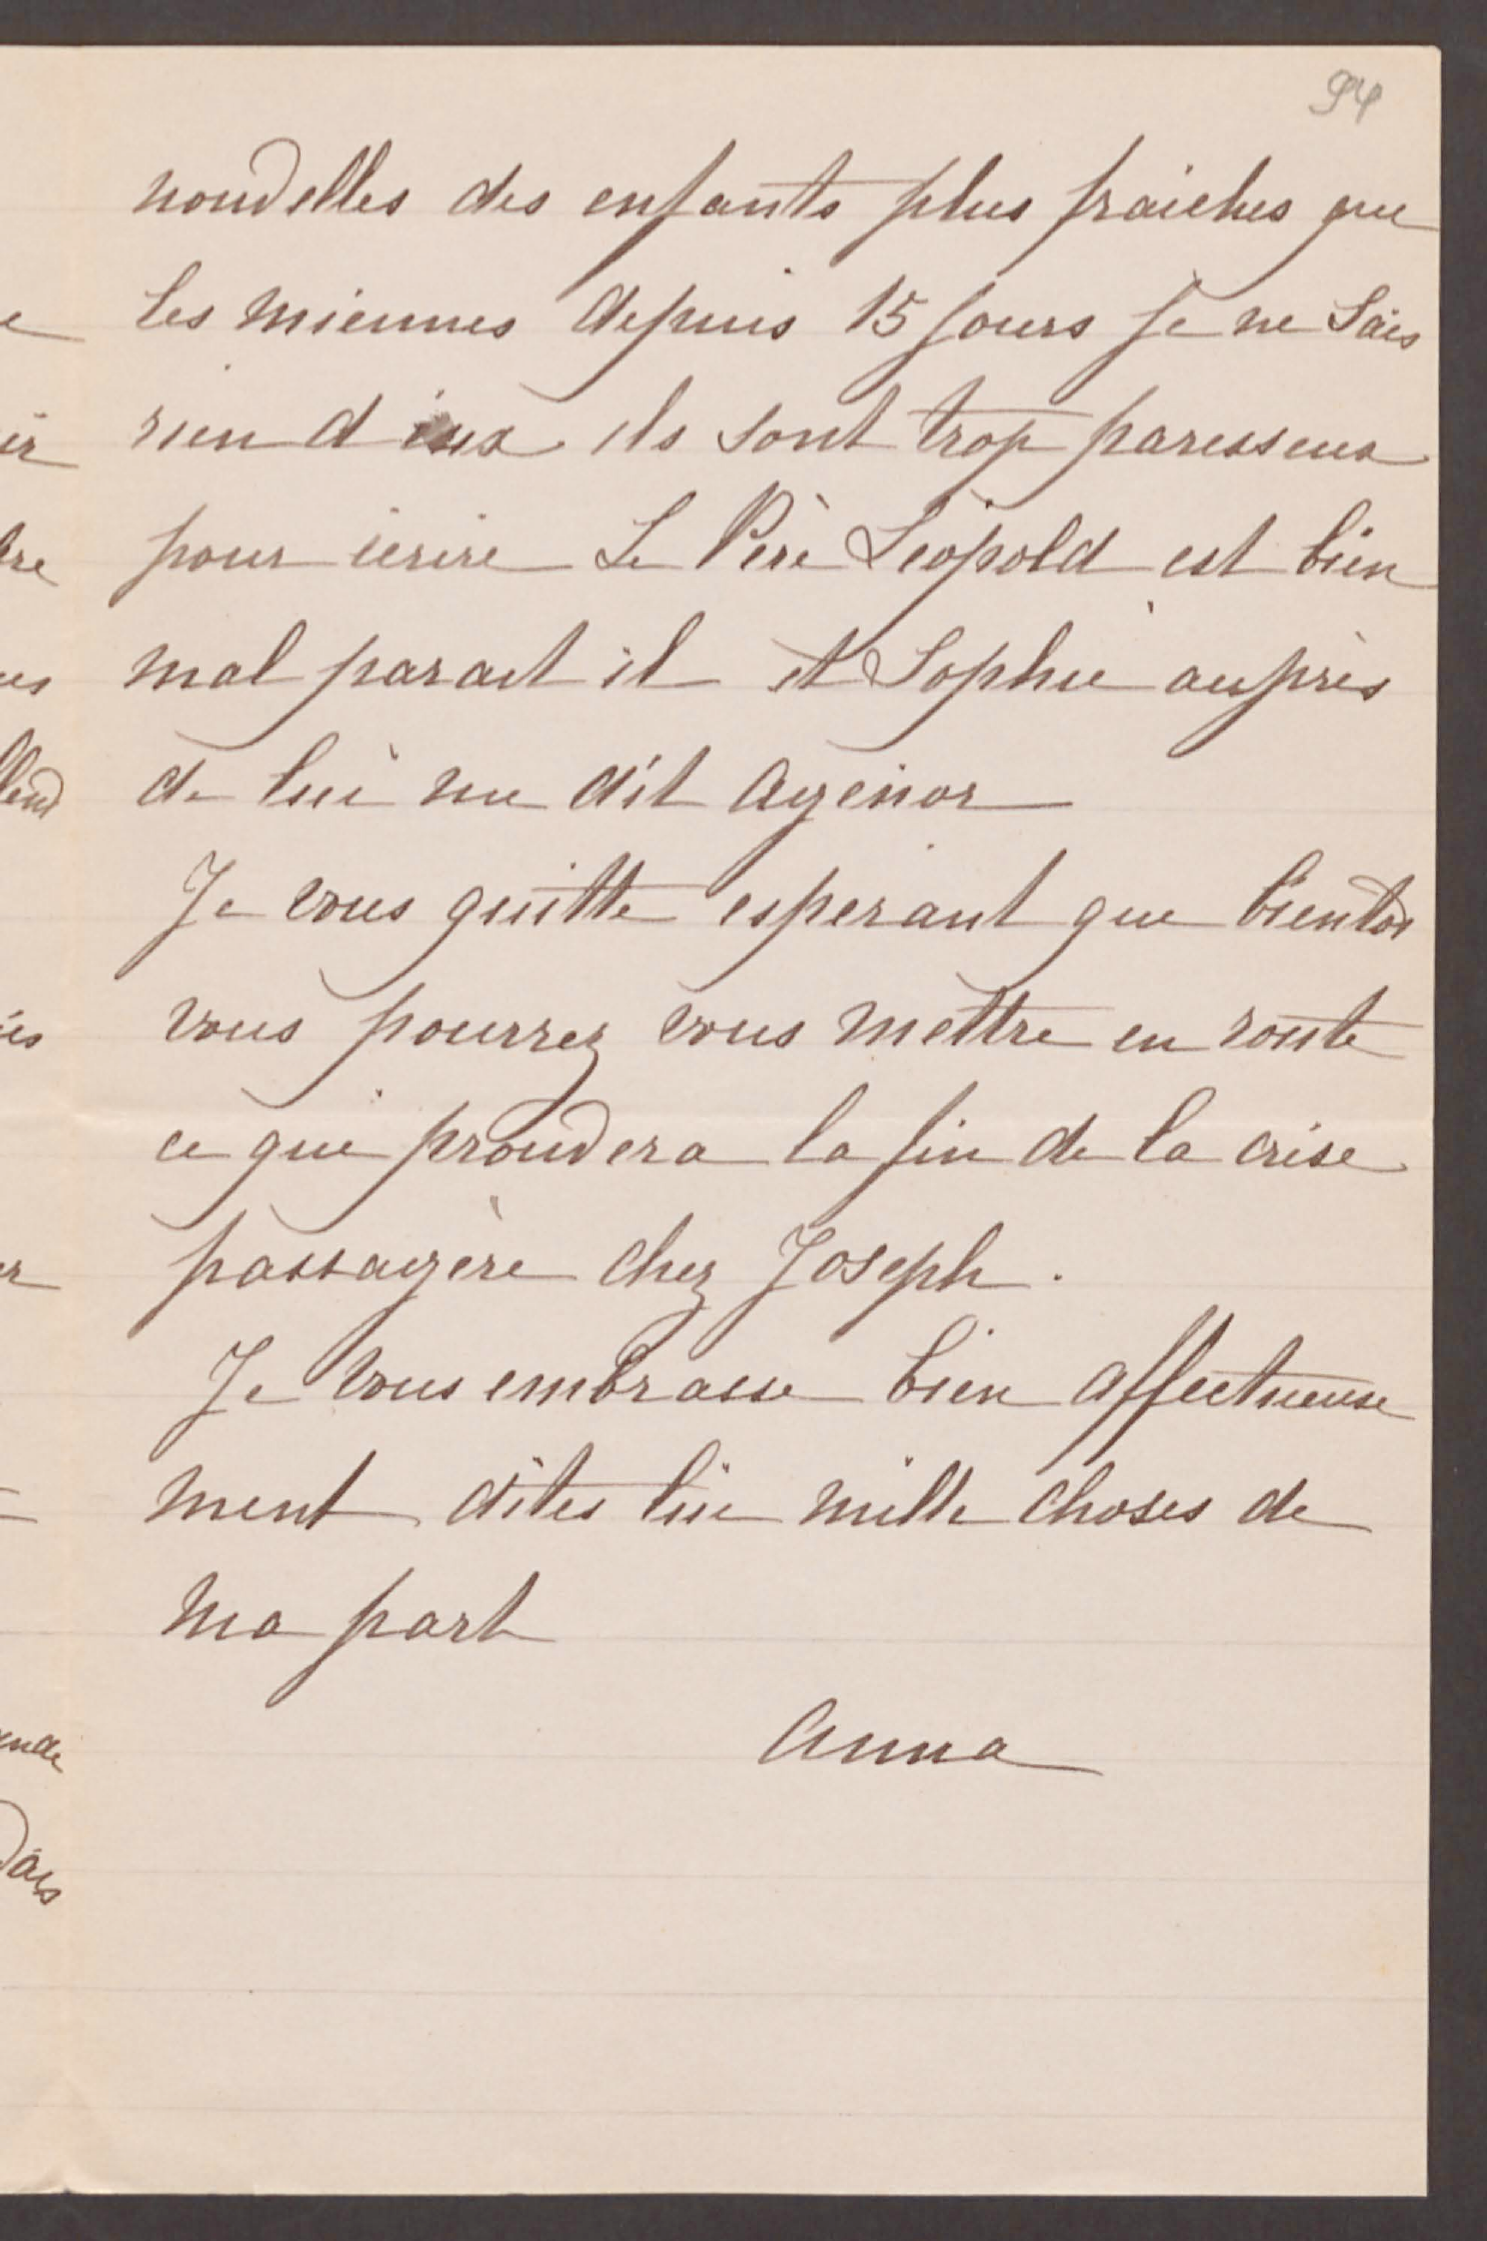 94
nouvelles des enfants plus fraiches que
les miennes depuis 15 jours je ne sais
rien d'eux ils sont trop paresseux
pour écrire Le Père Léopold est bien
mal parait il et Sophie auprès
de lui me dit Agénor
Je vous quitte esperant que bientot
vous pourrez vous mettre en route
ce qui prouvera la fin de la crise
passagère chez Joseph.
Je vous embrasse bien affectueuse
ment dites lui mille choses de
ma part
Anna